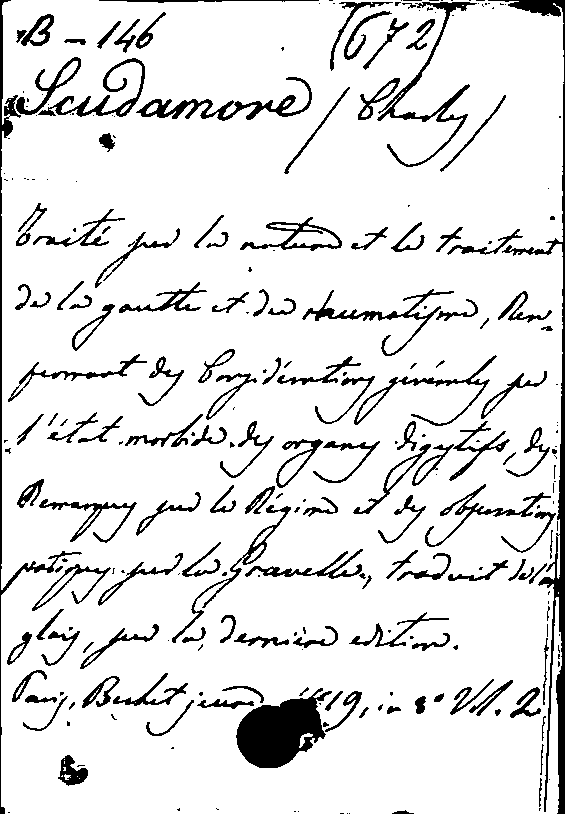 B - 146 (672)
Scudamore / Charles /
Traité sur la nature et le traitement
de la goutte et du rhumatisme, Ren-
fermant des Considérations générales sur
l'état morbide des organes digestifs, des
Remarques sur le Régime et des observations
pratiques sur la Gravelle, traduit de l'an
glais, sur la dernière edition.
Paris, Bechet jeune 1819, in 8° Vol. 2